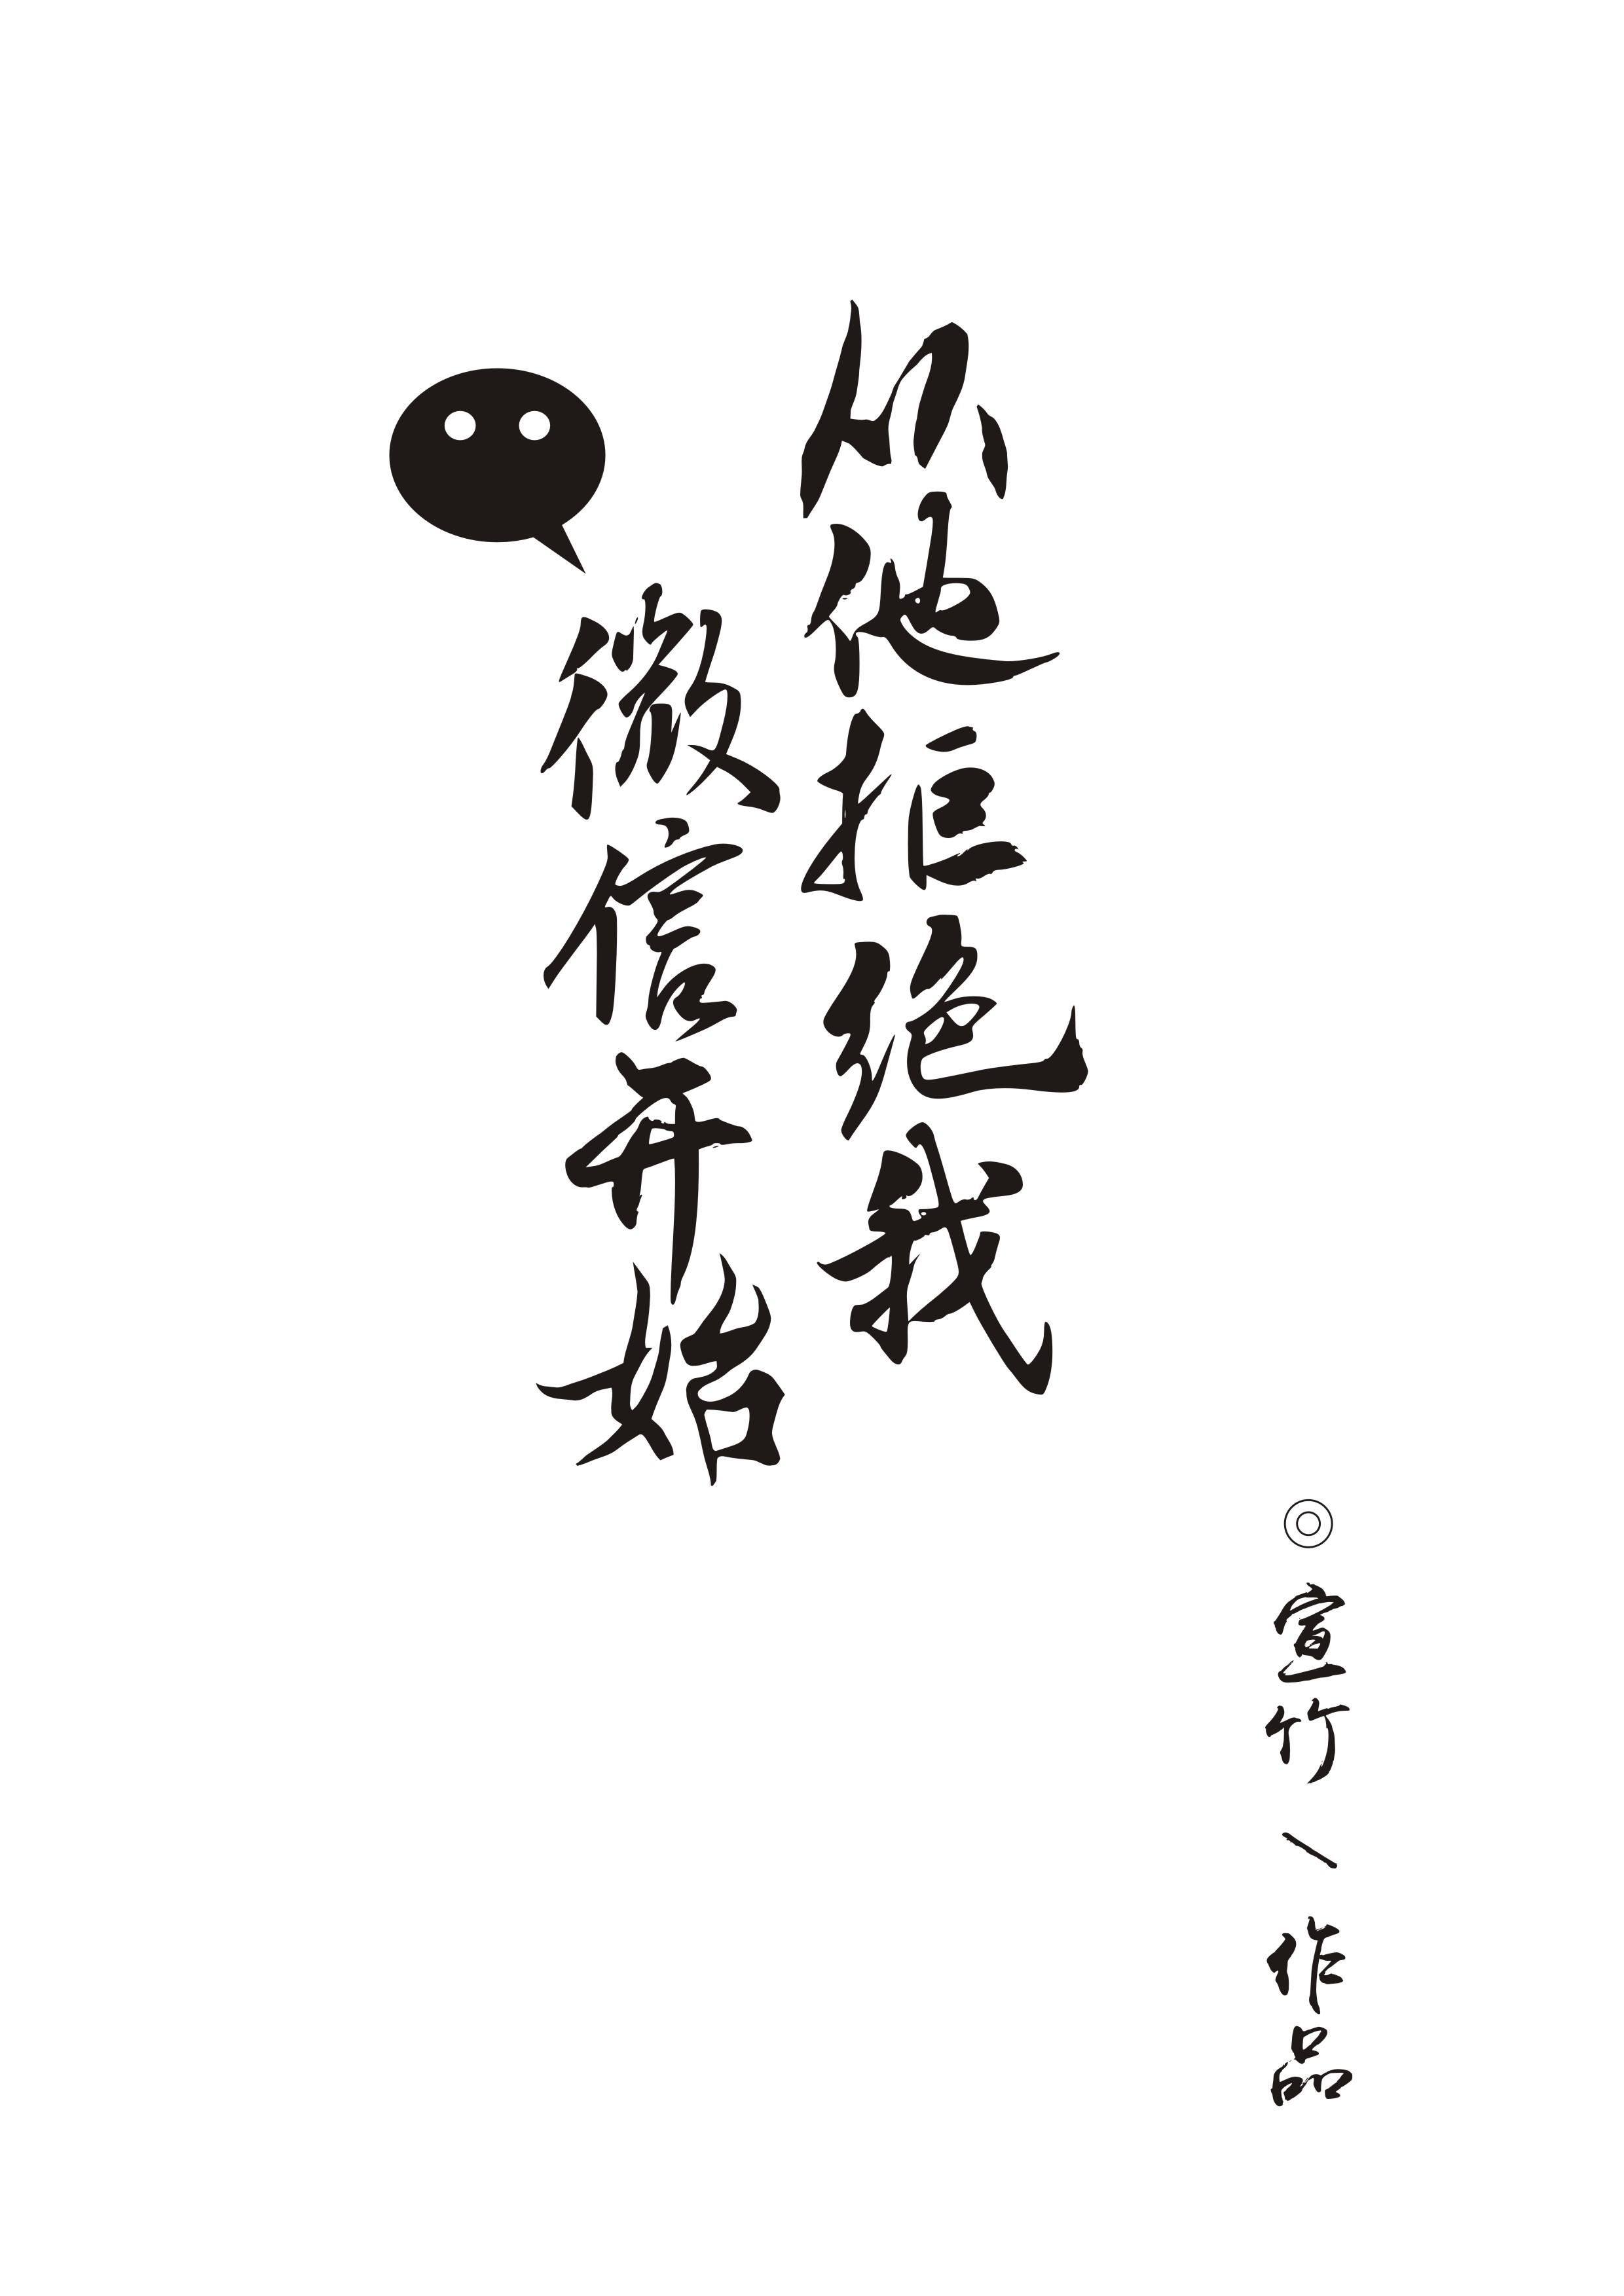 从他拒绝我
微信开始
宣竹 \ 作品